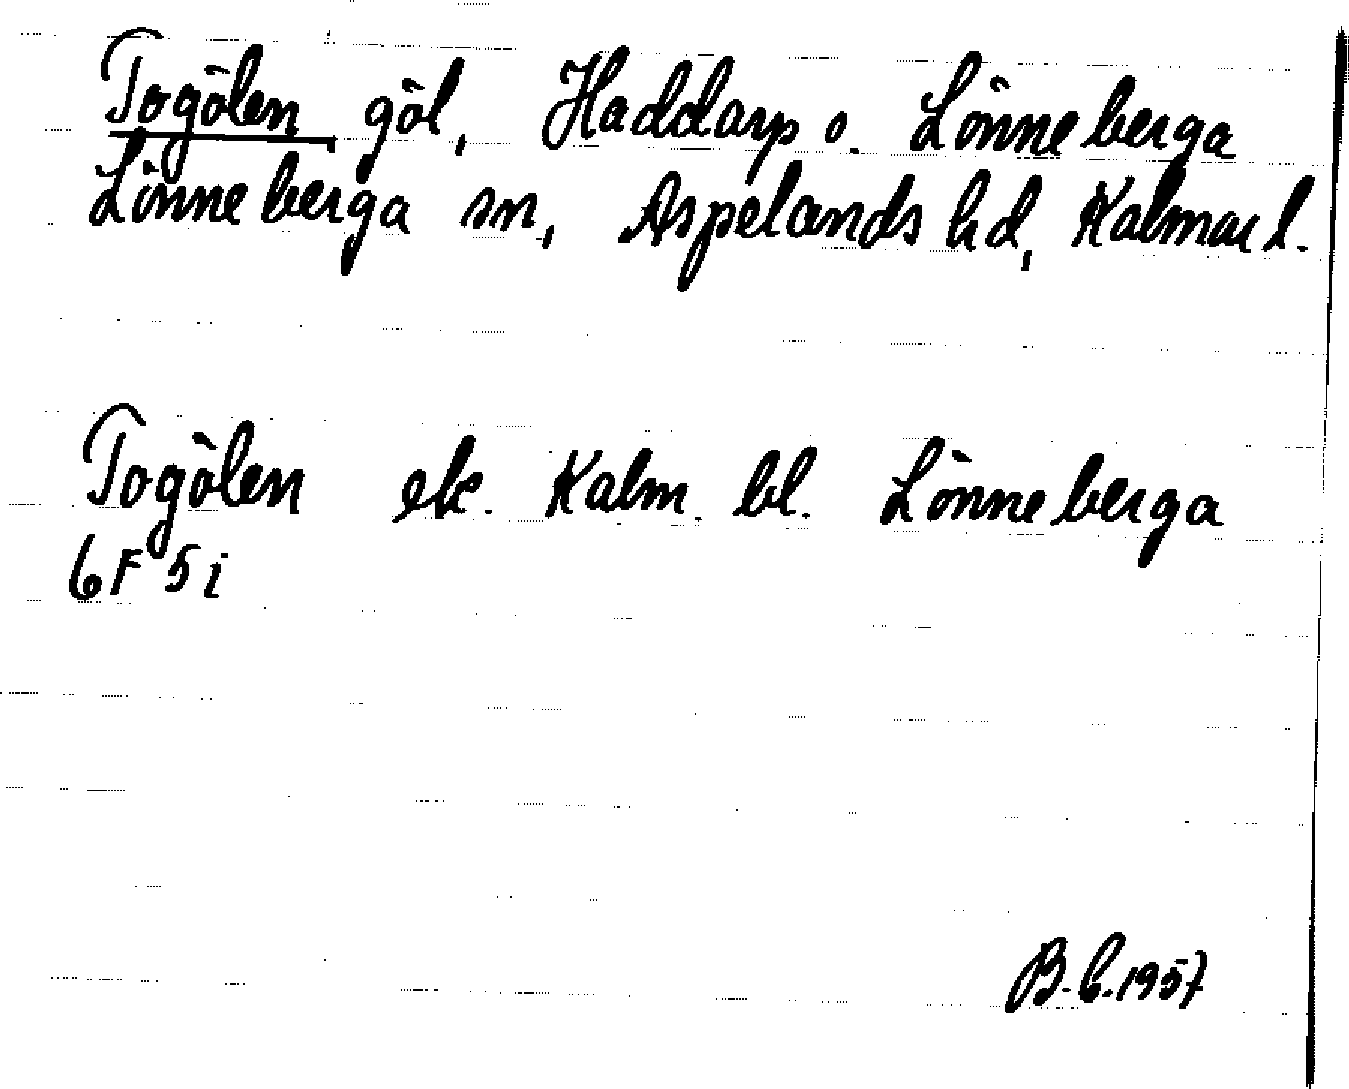 Togölen göl, Haddarp o. Lönneberga
Lönneberga sn, Aspelands hd, Kalmar l.
Togölen ek. Kalm. bl. Lönneberga
6F 5i
B.C. 1957